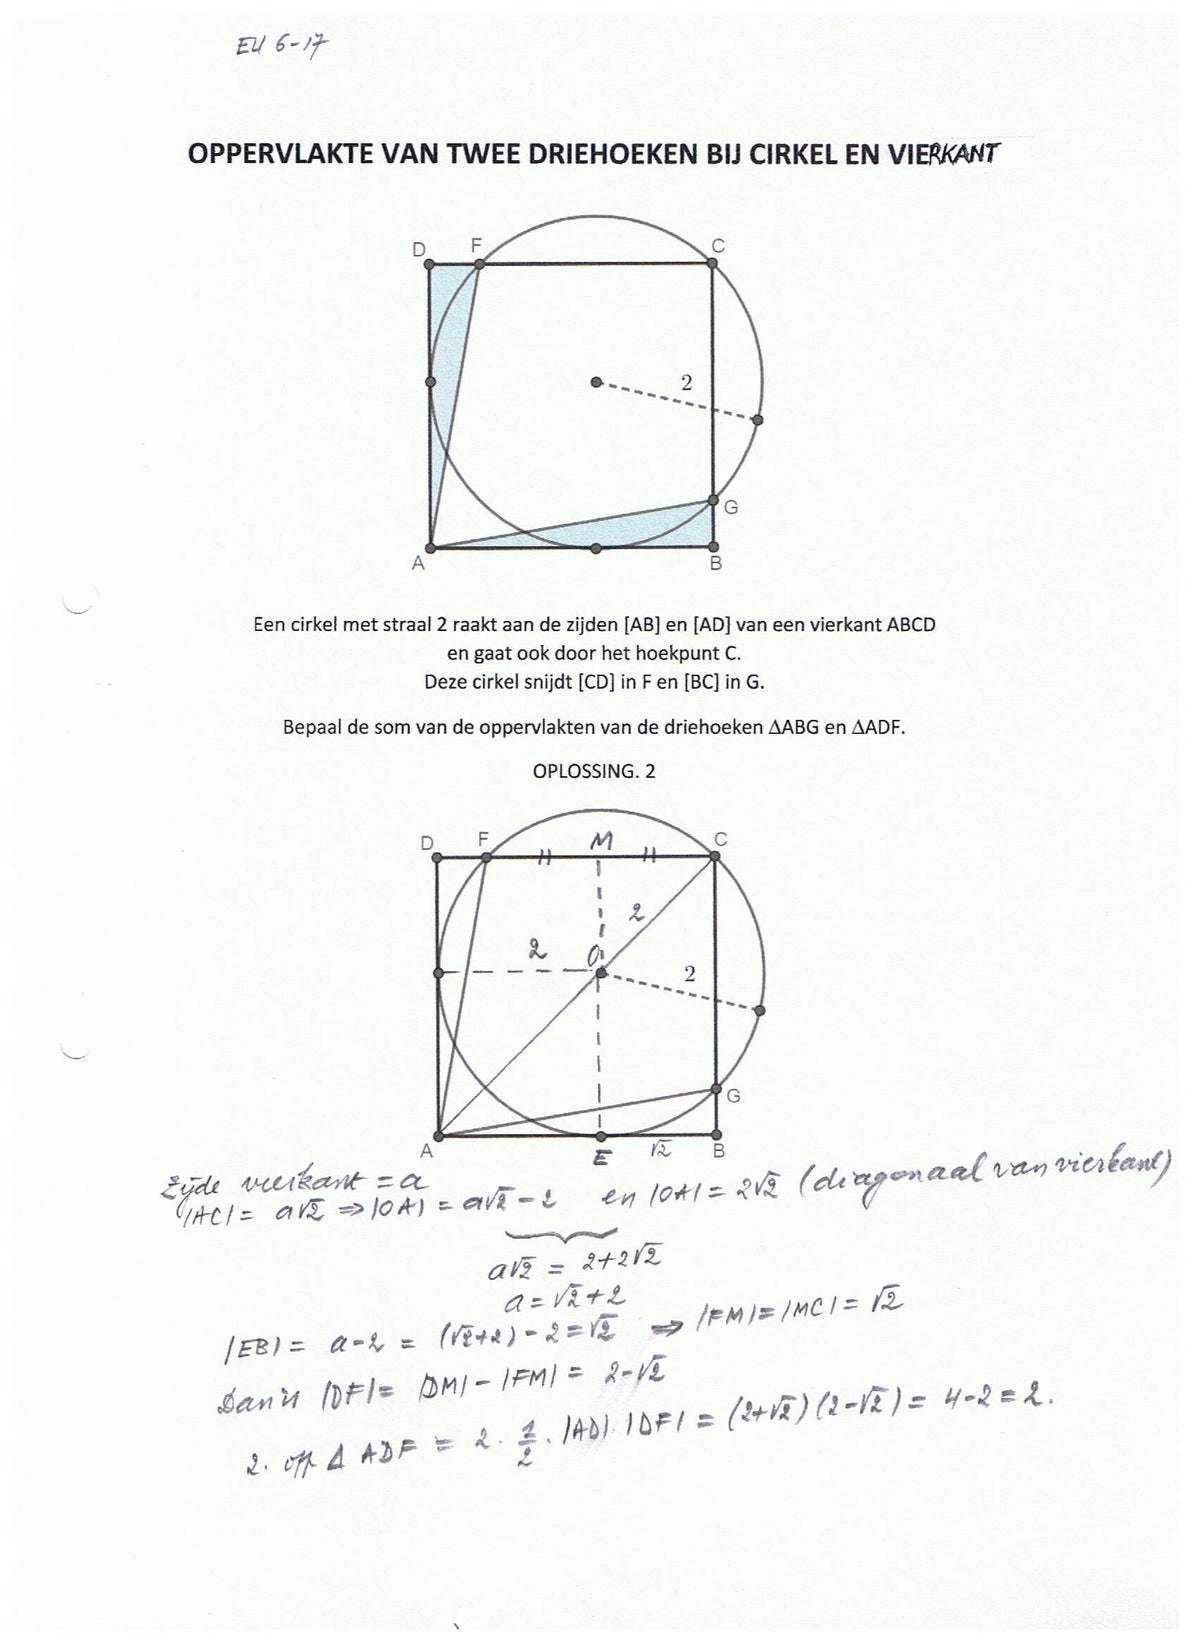 EU 6-17
OPPERVLAKTE VAN TWEE DRIEHOEKEN BIJ CIRKEL EN VIERKANT
D F C
2
G
A B
Een cirkel met straal 2 raakt aan de zijden [AB] en [AD] van een vierkant ABCD
en gaat ook door het hoekpunt C.
Deze cirkel snijdt [CD] in F en [BC] in G.
Bepaal de som van de oppervlakten van de driehoeken ΔABG en ΔADF.
OPLOSSING. 2
D F M C
2
2 O
2
G
A E √2 B
Zijde vierkant = a
|AC| = a√2 ⇒ |OA| = a√2 - 2 en |OA| = 2√2 (diagonaal van vierkant)
a√2 = 2+2√2
a = √2+2
|EB| = a-2 = (√2+2)-2 = √2 ⇒ |FM| = |MC| = √2
Dan is |DF| = |DM| - |FM| = 2-√2
2. opp Δ ADF = 2. 1/2 . |AD| . |DF| = (2+√2)(2-√2) = 4-2 = 2.